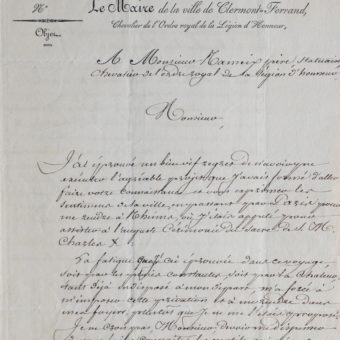 N°
Objet
Le Maire de la ville de Clermont-Ferrand,
Chevalier de l'Ordre royal de la Légion d'Honneur,
A Monsieur Rameix, père, Statuaire
chevalier de l'ordre royal de la Légion d'honneur
Monsieur
J'ai éprouvé un bien vif regret de n'avoir pu
exécuter l'agréable projet que j'avais formé d'aller
faire votre connaissance et vous exprimer les
sentimens de la ville, en passant par Paris pour
me rendre à Rheims, où j'étais appelé pour
assister à l'auguste Cérémonie du Sacre de S. M.
Charles X.
La fatigue que j'ai éprouvée dans ce voyage,
soit par les courses constantes soit par la chaleur,
étant déjà indisposé à mon départ, m'a forcé à
m'imposer cette privation et à me rendre dans
mes foyers, plutôt que je ne me l'étais proposé.
Je ne crois pas, Monsieur, devoir me dispenser